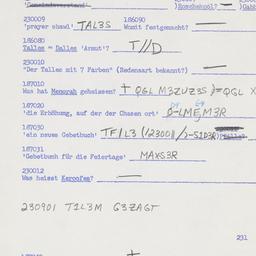 230009 186090
'prayer shawl' TAL3S Womit festgemacht? —
186080
Talles = Dalles 'Armut'? T//D
230010
"Der Talles mit 7 Farben" (Redensart bekannt?) —
187010
Was hat Menorah geheissen? + QGL M3ZUZ3S )=QGL X
187020
'die Erhöhung, auf der der Chasen ort'
187030
'ein neues Gebetbuch'
187031
'Gebetbuch für die Feiertage' MAXS3R
230012
Was heisst Keroofes? —
230901 T1L3M G3ZAGT
231